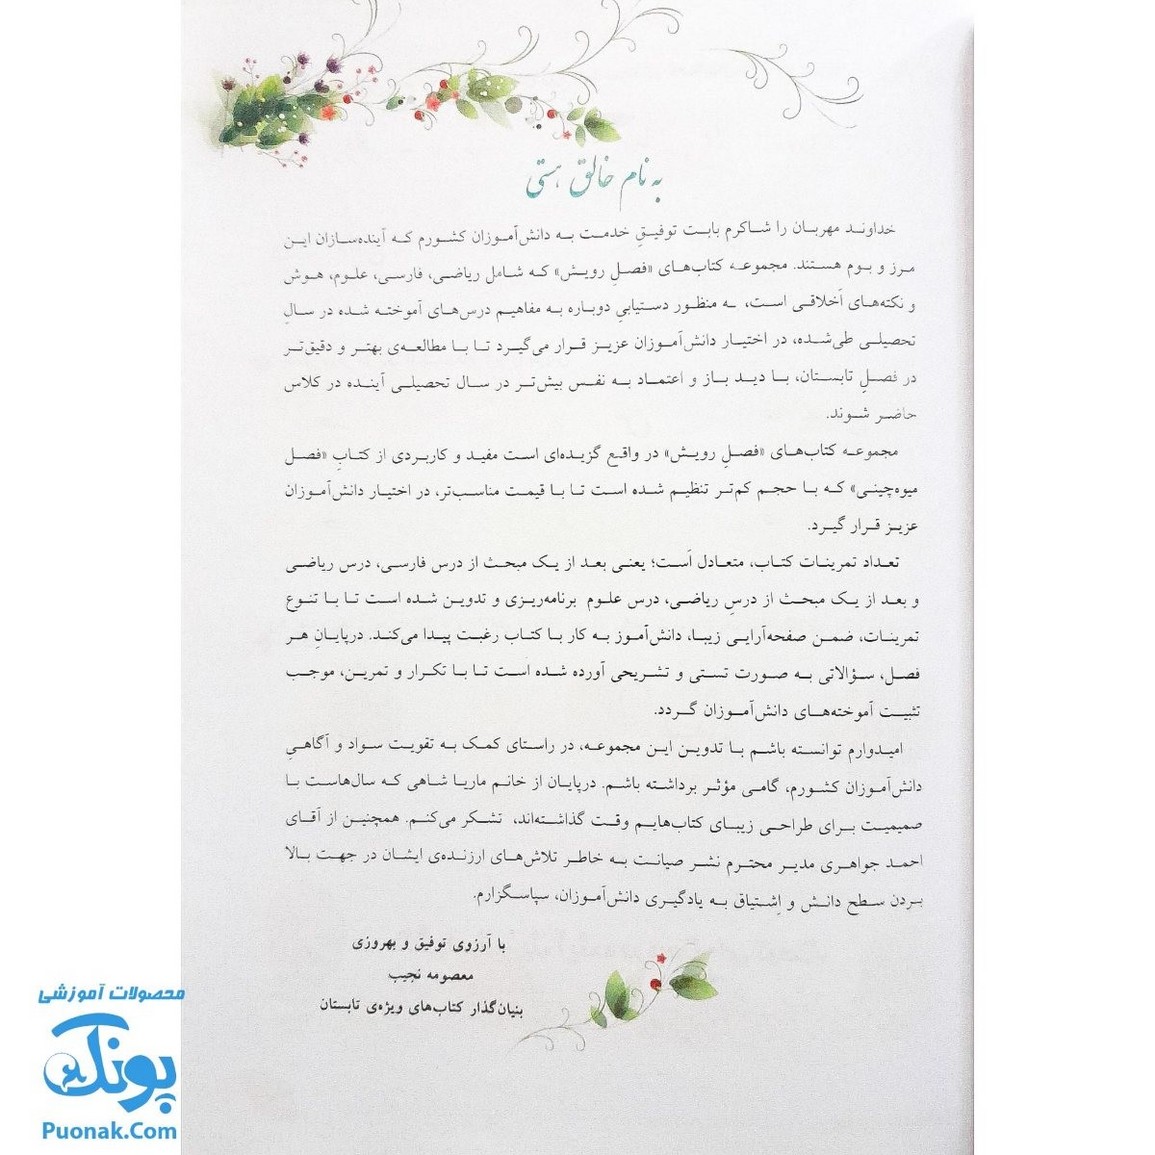 به نام خالق هستی
خداوند مهربان را شاکرم بابت توفیقِ خدمت به دانش‌آموزان کشورم که آینده‌سازان این
مرز و بوم هستند. مجموعه کتاب‌های «فصلِ رویش» که شامل ریاضی، فارسی، علوم، هوش
و نکته‌های اَخلاقی است، به منظور دستیابیِ دوباره به مفاهیم درس‌های آموخته شده در سالِ
تحصیلی طی‌شده، در اختیار دانش‌آموزان عزیز قرار می‌گیرد تا با مطالعه‌ی بهتر و دقیق‌تر
در فصلِ تابستان، با دید باز و اعتماد به نفس بیش‌تر در سال تحصیلی آینده در کلاس
حاضر شوند.
مجموعه کتاب‌های «فصلِ رویش» در واقع گزیده‌ای است مفید و کاربردی از کتابِ «فصل
میوه‌چینی» که با حجم کم‌تر تنظیم شده است تا با قیمت مناسب‌تر، در اختیار دانش‌آموزان
عزیز قرار گیرد.
تعداد تمرینات کتاب، متعادل اَست؛ یعنی بعد از یک مبحث از درس فارسی، درس ریاضی
و بعد از یک مبحث از درسِ ریاضی، درس علوم برنامه‌ریزی و تدوین شده است تا با تنوع
تمرینات، ضمن صفحه‌آرایی زیبا، دانش‌آموز به کار با کتاب رغبت پیدا می‌کند. درپایانِ هر
فصل، سؤالاتی به صورت تستی و تشریحی آورده شده است تا با تکرار و تمرین، موجب
تثبیت آموخته‌های دانش‌آموزان گردد.
امیدوارم توانسته باشم با تدوین این مجموعه، در راستای کمک به تقویت سواد و آگاهیِ
دانش‌آموزان کشورم، گامی مؤثر برداشته باشم. درپایان از خانم ماریا شاهی که سال‌هاست با
صمیمیت برای طراحی زیبای کتاب‌هایم وقت گذاشته‌اند، تشکر می‌کنم. همچنین از آقای
احمد جواهری مدیر محترم نشر صیانت به خاطر تلاش‌های ارزنده‌ی ایشان در جهت بالا
بردن سطح دانش و اِشتیاق به یادگیری دانش‌آموزان، سپاسگزارم.
با آرزوی توفیق و بهروزی
معصومه نجیب
بنیان‌گذار کتاب‌های ویژه‌ی تابستان
محصولات آموزشی
پونک
Puonak.Com